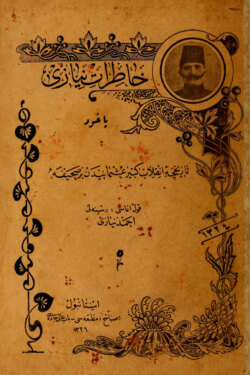 خاطرات نیازی
یاخود
تاریخچهٔ انقلاب کبیر عثمانیدن بر صحیفه
قول آغاسی رسنه‌لی
احمد نیازی
استانبول
صباح مطبعه سی
۱۳۲۶
۱۳۲٤